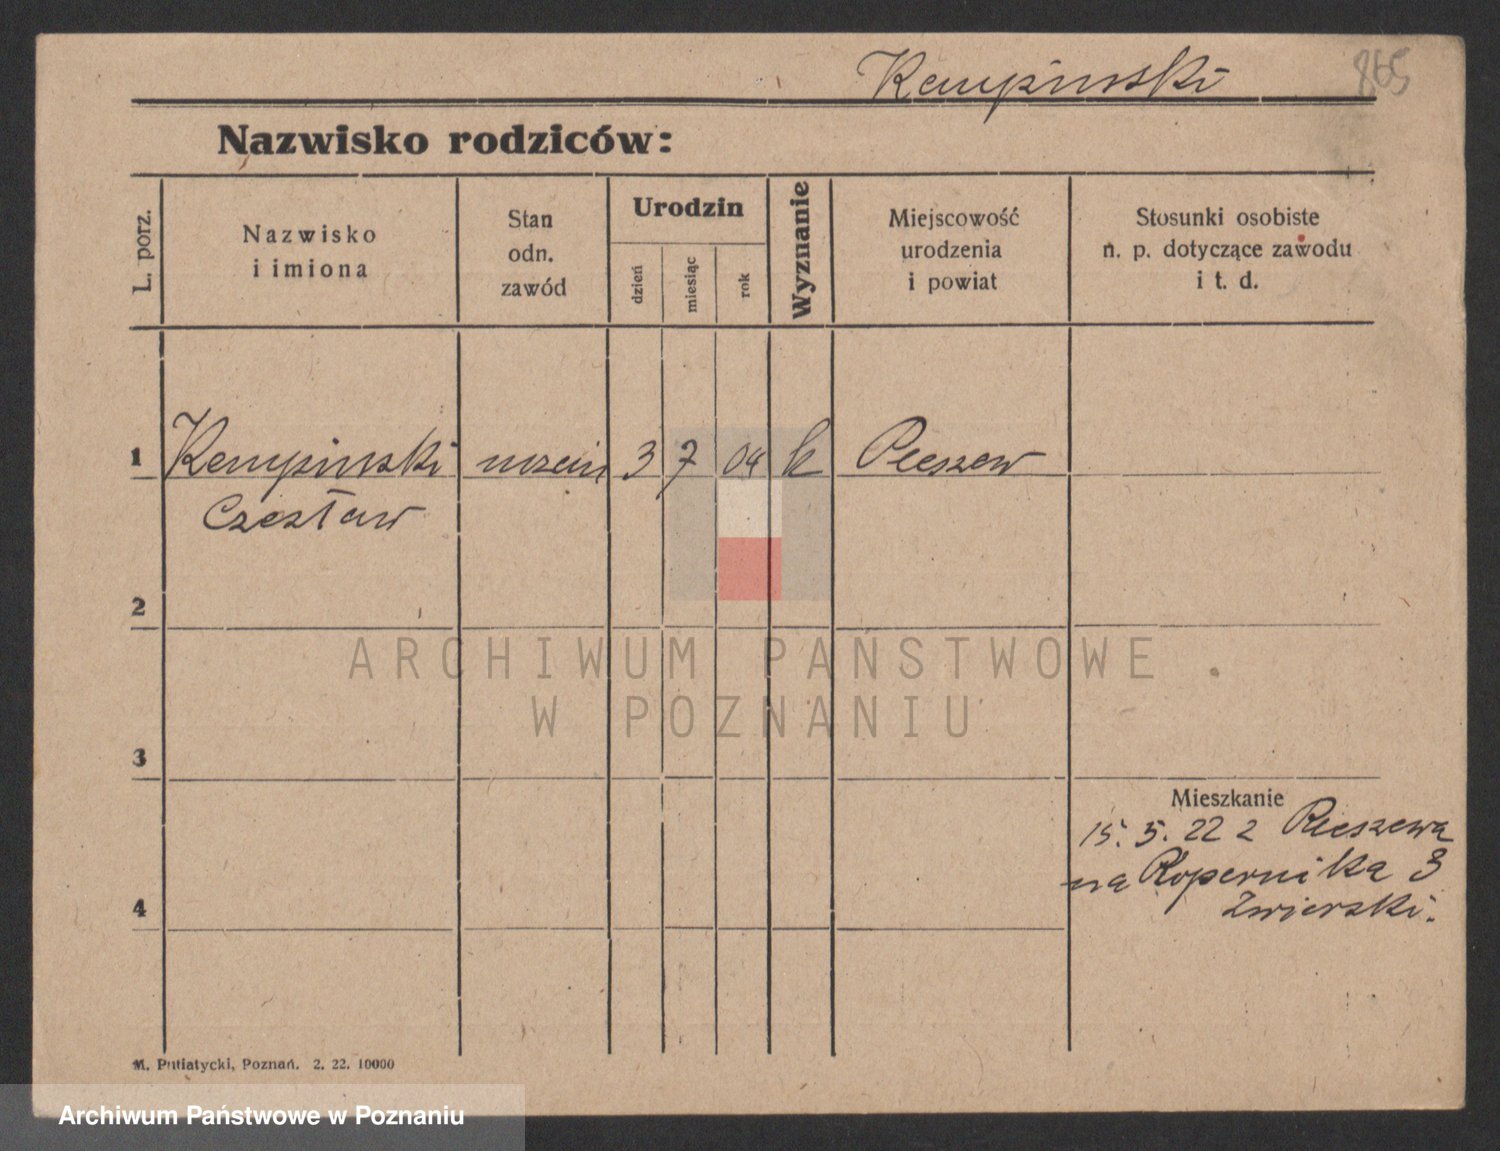 Kempinski 865
Nazwisko rodziców:
L. porz.
Nazwisko
i imiona
Stan
odn.
zawód
Urodzin
dzień
miesiąc
rok
Wyznanie
Miejscowość
urodzenia
i powiat
Stosunki osobiste
n. p. dotyczące zawodu
i t. d.
1 Kempinski uczeń 3 7 04 k Pleszew
Czesław
2
ARCHIWUM PAŃSTWOWE
W POZNANIU
3
Mieszkanie
15. 5. 22 z Pleszewa
na Kopernika 3
Zwierski.
4
M. Putiatycki, Poznań. 2. 22. 10000
Archiwum Państwowe w Poznaniu